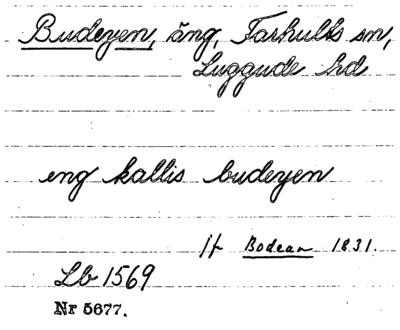 Budeyen, äng, Farhults sn,
Luggude hd
eng kallis budeyen
jf Bodean 1831.
Lb 1569
Nr 5677.